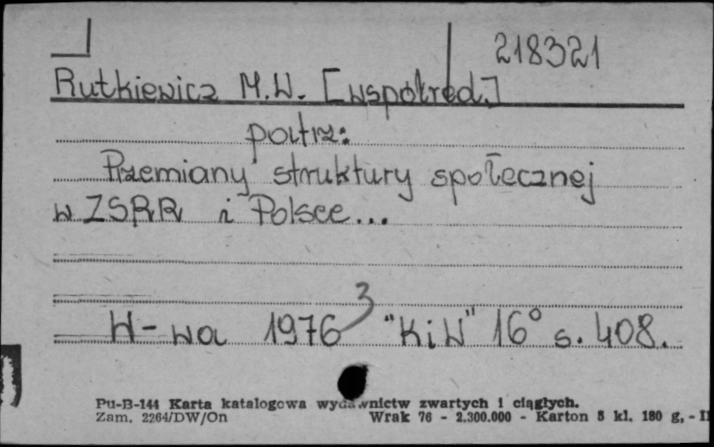 218321
Rutkiewicz M.W. [współred.]
patrz:
Przemiany struktury społecznej
w ZSRR i Polsce...
3
W-wa 1976 "KiW" 16° s. 408.
Pu-B-144 Karta katalogowa wydawnictw zwartych i ciągłych.
Zam. 2264/DW/On Wrak 76 - 2.300.000 - Karton 5 kl. 180 g, -